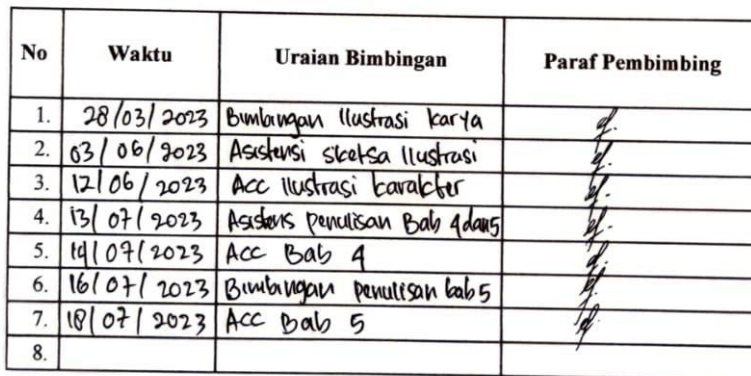 No Waktu Uraian Bimbingan Paraf Pembimbing
1. 28/03/2023 Bimbingan Ilustrasi karya
2. 03/06/2023 Asistensi sketsa Ilustrasi
3. 12/06/2023 Acc Ilustrasi karakter
4. 13/07/2023 Asistens penulisan Bab 4 dan 5
5. 14/07/2023 Acc Bab 4
6. 16/07/2023 Bimbingan penulisan bab 5
7. 18/07/2023 Acc Bab 5
8.